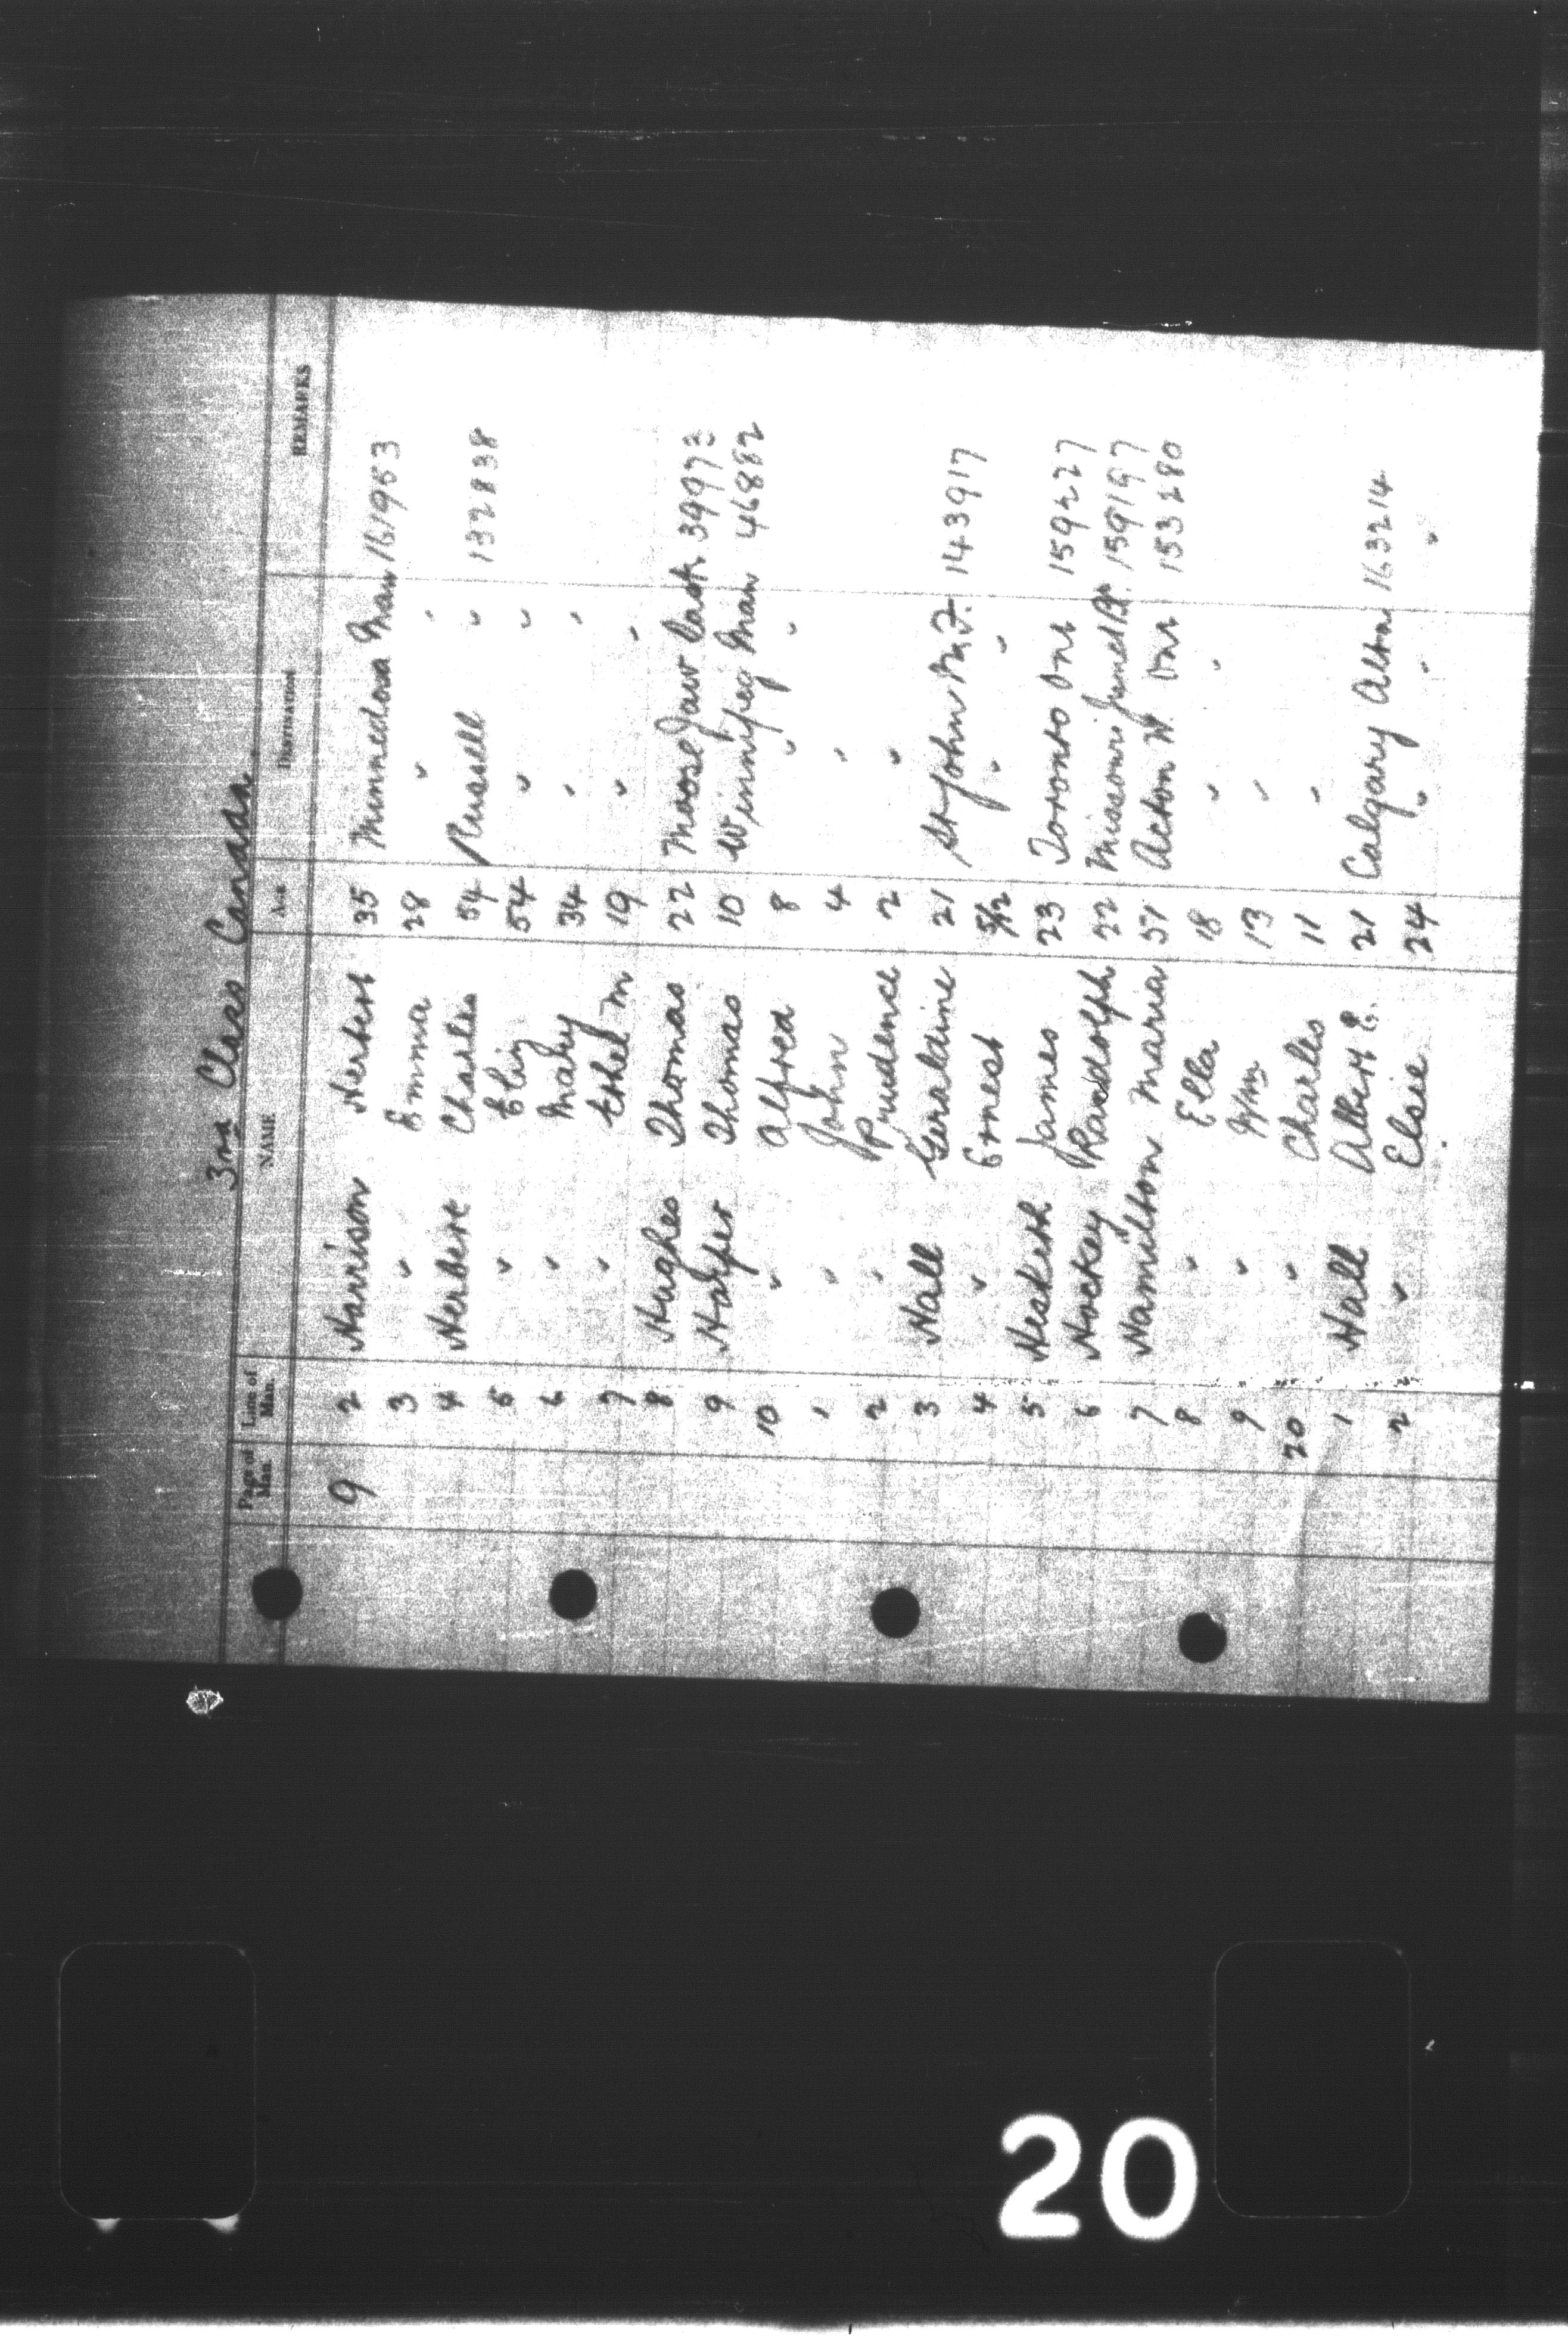 3rd Class Canada.
Page of Man. Line of Man. NAME AGE DESTINATION REMARKS
9 2 Harrison Herbert 35 Minnedosa Man 161953
3 " Emma 28 " "
4 Herbert Charles 54 Russell " 132838
5 " Eliz 54 " "
6 " Mary 34 " "
7 " Ethel M 19 " "
8 Hughes Thomas 22 Moose Jaw Sask 39973
9 Harper Thomas 10 Winnipeg Man 46882
10 " Alfred 8 " "
1 " John 4 "
2 " Prudence 2 "
3 Hall Geraldine 21 St John 143917
4 " Ernest 5/12 " "
5 Hesketh James 23 Toronto Ont 159227
6 Hockey Raddolph 22 Missouri 159197
7 Hamilton Maria 57 Acton W Ont 153280
8 " Ella 18 " "
9 " Wm 13 "
20 " Charles 11 "
1 Hall Albert E. 21 Calgary Alta 163214
2 " Elsie 24 " " "
20